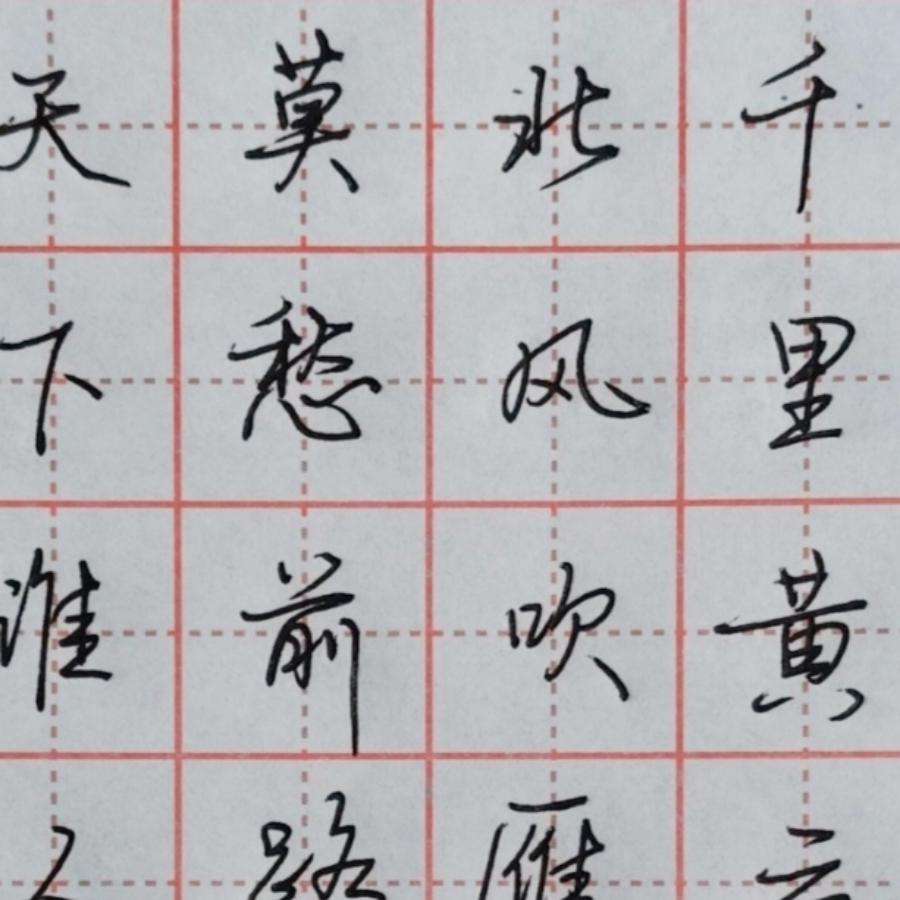 千里黄云
北风吹雁
莫愁前路
天下谁人